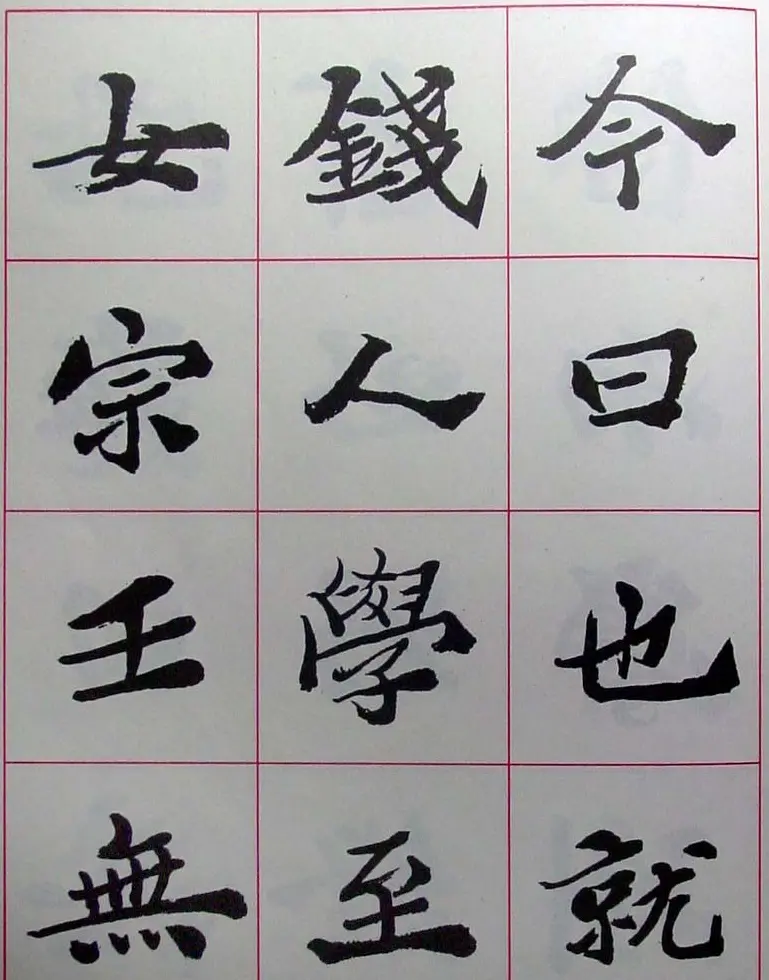 今曰也就
錢人學至
女宗壬無